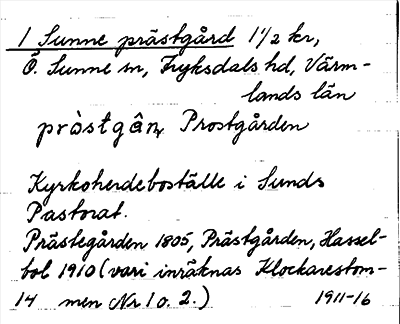 1 Sunne prästgård 1 1/2 kr,
Ö. Sunne sn, Fryksdals hd, Värm-
lands län
pròstgân, Prostgården
Kyrkoherdeboställe i Sunds
Pastorat.
Prästegården 1805, Prästgården, Hassel-
bol 1910 (vari inräknas Klockarestom-
14 men Nr 1 o. 2.) 1911-16